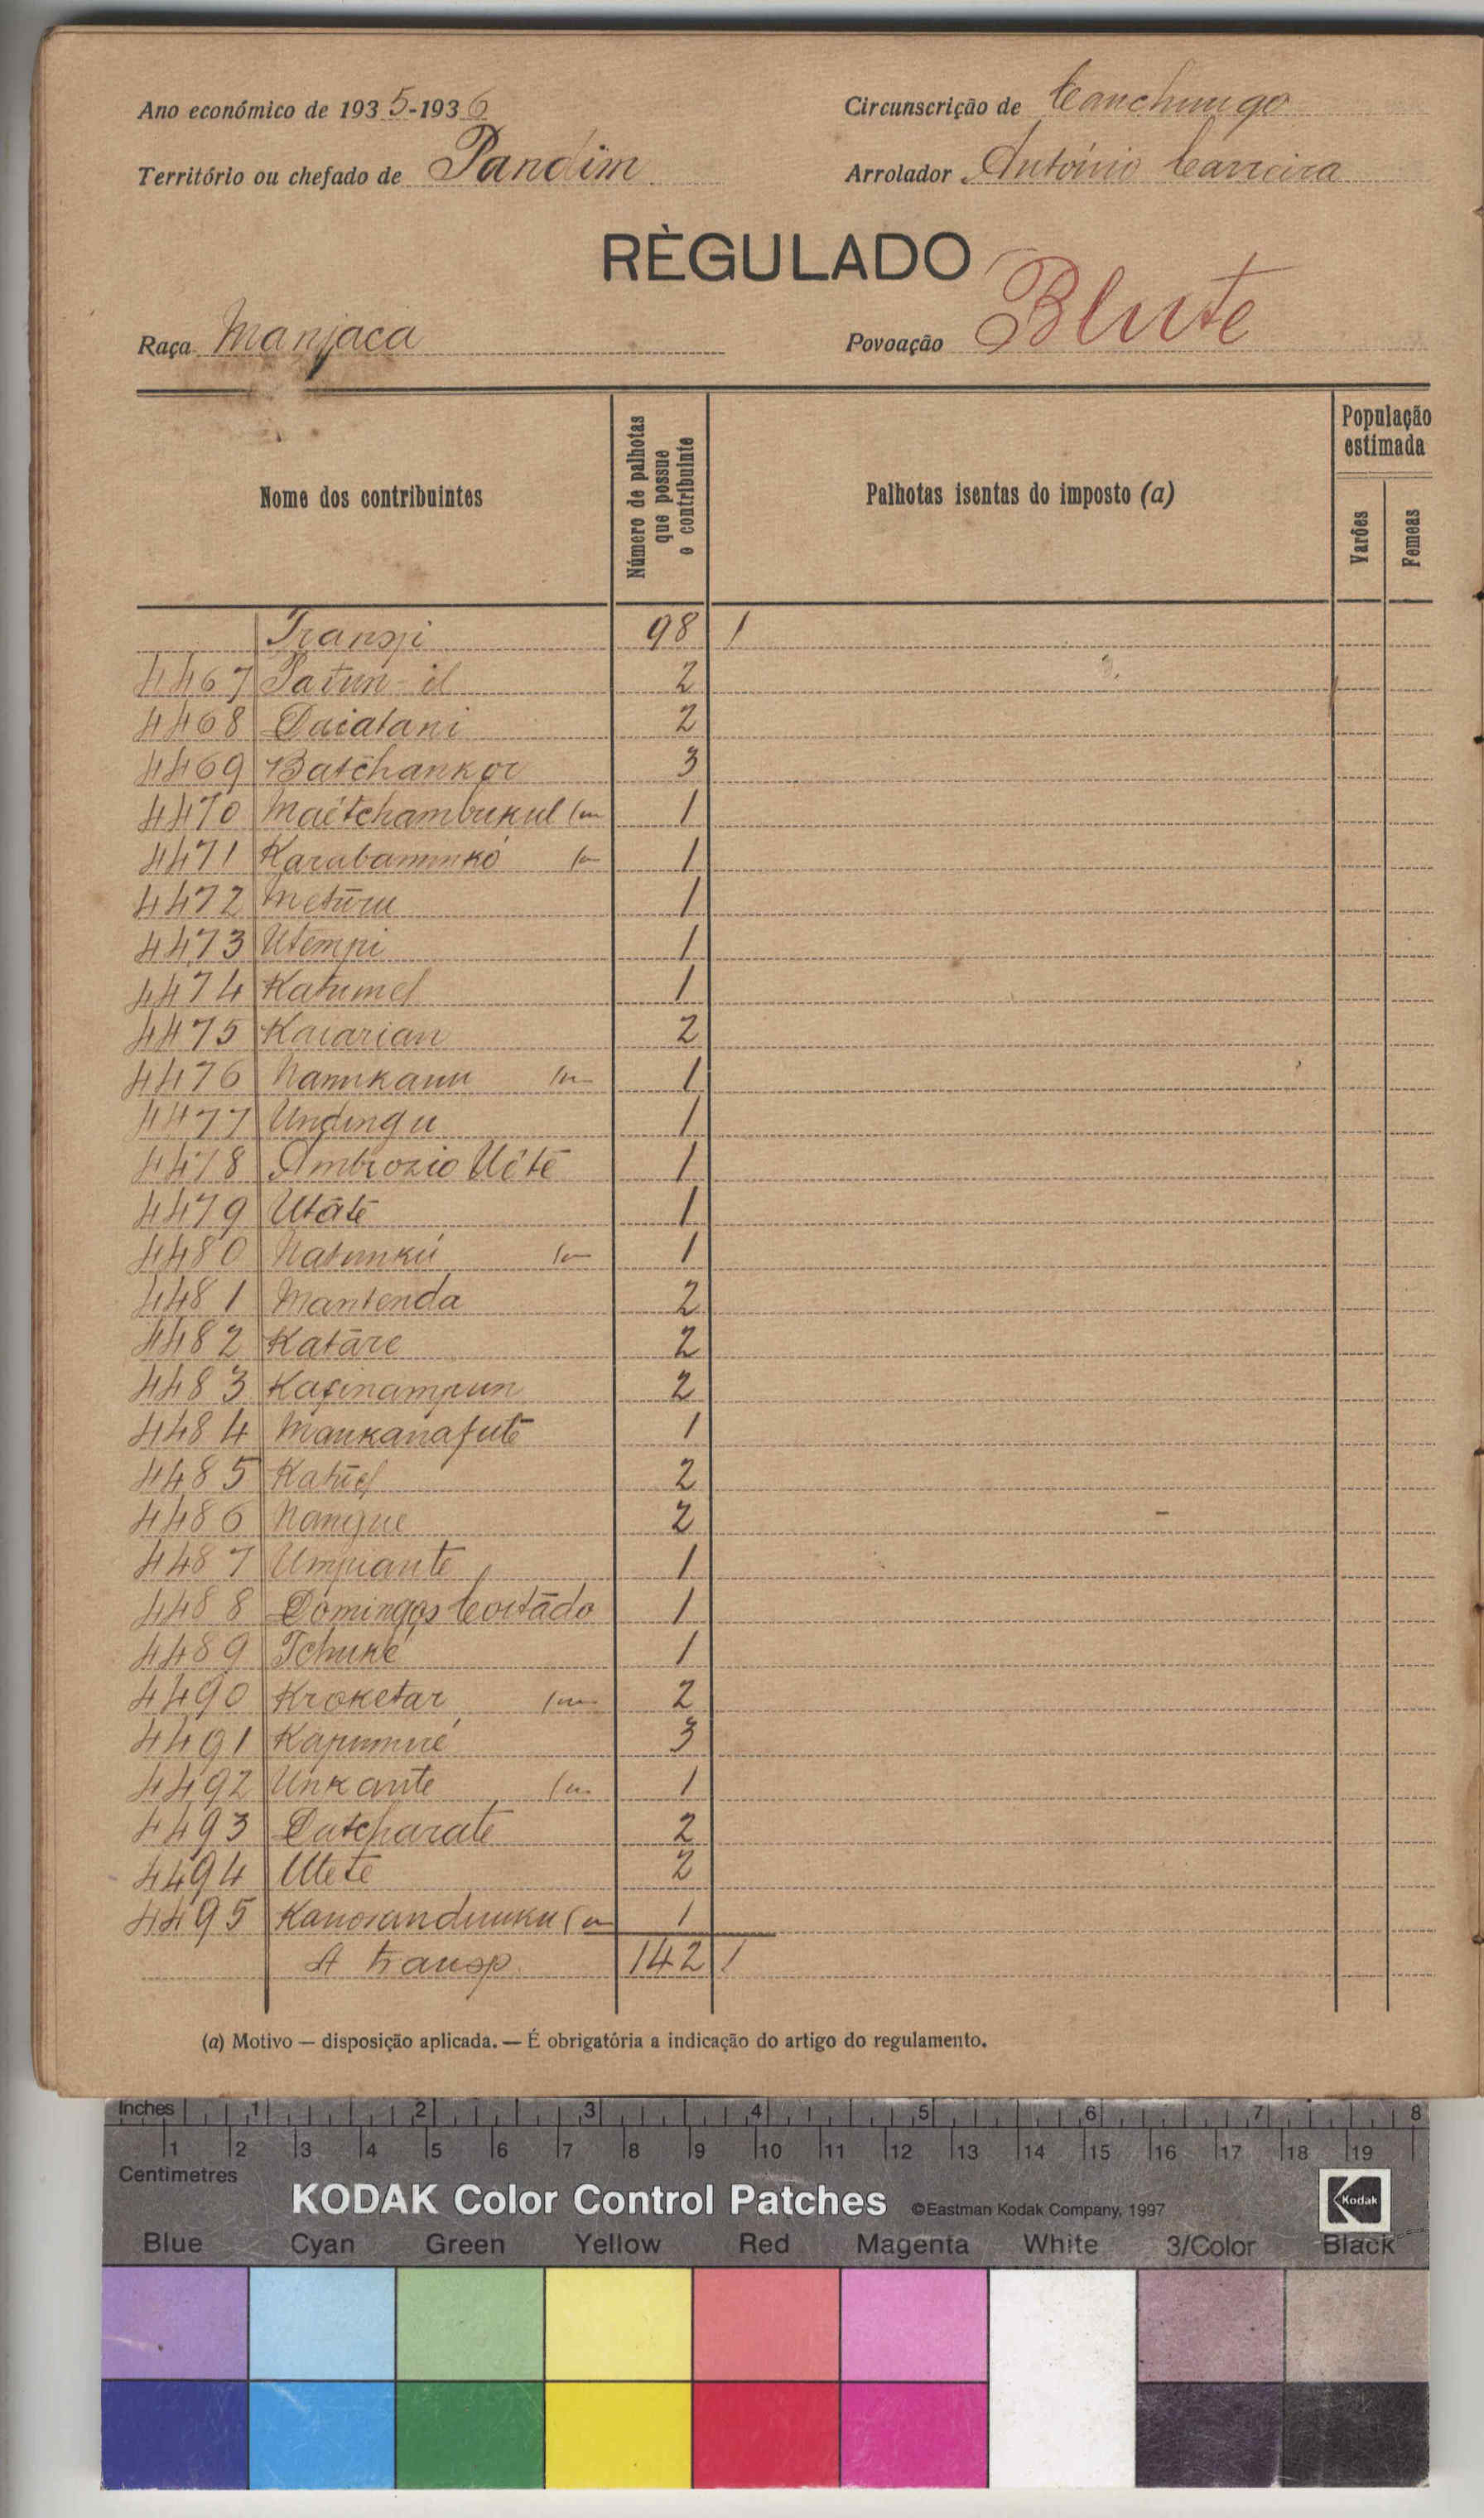 Ano económico de 1935-1936
Circunscrição de Canchungo
Território ou chefado de Pandim
Arrolador António Carreira
RÈGULADO
Raça Manjaca
Povoação Blute
Nome dos contribuintes
Número de palhotas que possue o contribuinte
Palhotas isentas do imposto (a)
População estimada
Varões
Femeas
Transp. 98 1
4467 Patun-il 2
4468 Daiatani 2
4469 Batchankor 3
4470 Maétchambukul 1
4471 1
4472 Metūru 1
4473 Utempi 1
4474 Katumel 1
4475 Kaiarian 2
4476 1
4477 Undingu 1
4478 Ambrozio Uété 1
4479 Utāte 1
4480 Natunkú 1
4481 Mantenda 2
4482 Katāre 2
4483 2
4484 Maukanafute 1
4485 Katūel 2
4486 Nangue 2
4487 Umpiante 1
4488 Domingos Cortādo 1
4489 Tchuké 1
4490 Kroketar 2
4491 3
4492 Unkante 1
4493 Datcharate 2
4494 Utete 2
4495 1
A transp. 142 1
(a) Motivo — disposição aplicada. — É obrigatória a indicação do artigo do regulamento.
Inches 1 2 3 4 5 6 7 8
1 2 3 4 5 6 7 8 9 10 11 12 13 14 15 16 17 18 19
Centimetres
KODAK Color Control Patches ©Eastman Kodak Company, 1997 Kodak
Blue Cyan Green Yellow Red Magenta White 3/Color Black